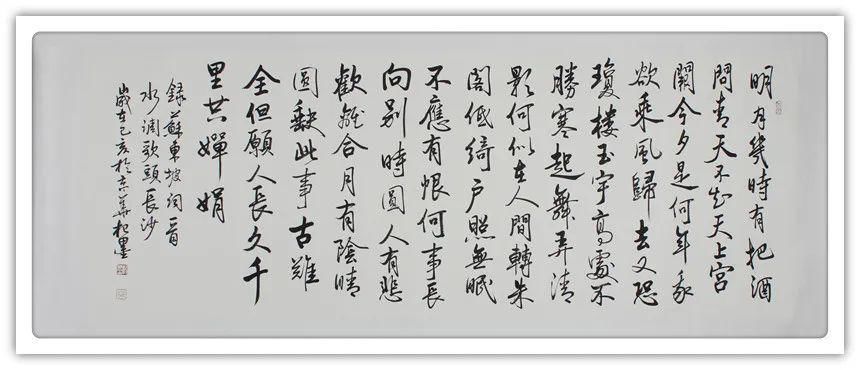 明月幾時有把酒
問青天不知天上宮
闕今夕是何年我
欲乘風歸去又恐
瓊楼玉宇高處不
勝寒起舞弄清
影何似在人間轉朱
閣低綺戶照無眠
不應有恨何事長
向别時圓人有悲
歡離合月有陰晴
圓缺此事古難
全但願人長久千
里共嬋娟
錄蘇東坡詞一首
水調歌頭長沙
歲在己亥於京華